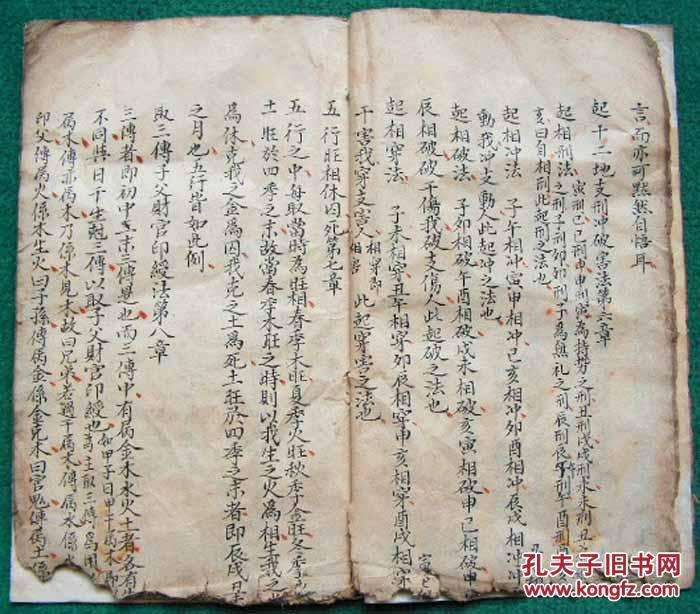 言而亦可默然自悟耳
起十二地支刑冲破害法第六章
起相刑法 寅刑巳巳刑申申刑寅為持势之刑丑刑戌戌刑未未刑丑
之刑子刑卯卯刑子為無礼之刑辰刑辰午刑午酉刑酉
亥曰自相刑此起刑之法也
起相冲法 子午相冲寅申相冲巳亥相冲卯酉相冲辰戌相冲
動我冲支動人此起冲之法也
起相破法 子卯相破午酉相破戌未相破亥寅相破申巳相破
辰相破破干傷我破支傷人此起破之法也
起相穿法 子未相穿丑午相穿卯辰相穿申亥相穿酉戌相穿
寅巳
干害我穿支害人 相穿即相害 此起穿害之法也
五行旺相休囚死第七章
五行之中每取當時為旺相春季木旺夏季火旺秋季金旺冬季
土旺於四季之末故當春季木旺之時則以我生之火為相生我之
為休克我之金為囚我克之土為死土旺於四季之末者即辰戌丑
之月也五行皆如此例
取三傳子父財官印綬法第八章
三傳者即初中末三傳是也而三傳中有属金木水火土者各有
不同與日干生尅三傳以取子父財官印綬也 如甲子日甲干属木即
為主取三傳為用
属木傳亦属木乃係木見木故曰兄弟若遇干属木傳属水係水
印父傳属火係木生火曰子孫傳属金係金克木曰官鬼傳属土係
孔夫子旧书网
KONGFZ.COM